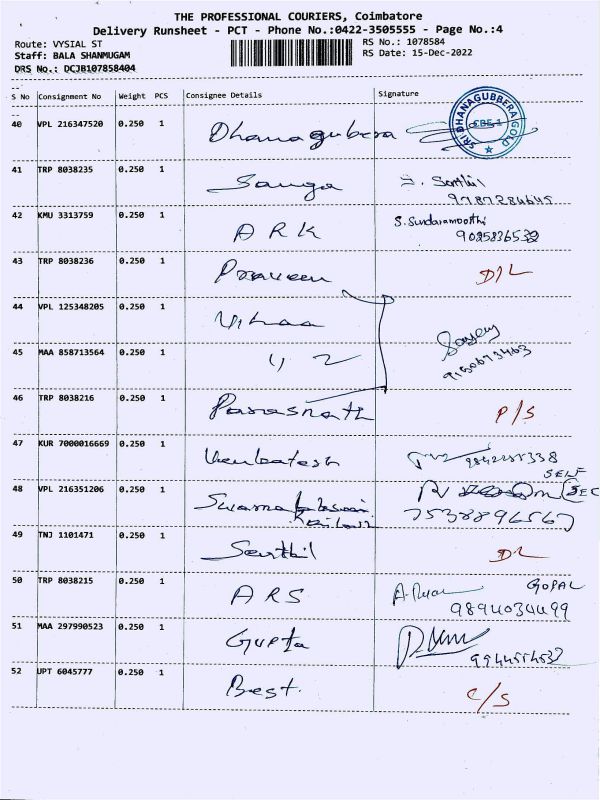 THE PROFESSIONAL COURIERS, Coimbatore
Delivery Runsheet - PCT - Phone No.:0422-3505555 - Page No.:4
Route: VYSIAL ST RS No.: 1078584
Staff: BALA SHANMUGAM RS Date: 15-Dec-2022
DRS No.: DCJB107858404
S No Consignment No Weight PCS Consignee Details Signature
SRI DHANAGUBBERA GOLD
CBE-1
40 VPL 216347520 0.250 1 Dhanagubera
41 TRP 8038235 0.250 1 Sanga S. Senthil
9787284645
42 KMU 3313759 0.250 1 ARK S. Sundaramoorthi
9025836532
43 TRP 8038236 0.250 1 Praveen D/L
44 VPL 125348205 0.250 1 Vihaa
45 MAA 858713564 0.250 1 9150673463
46 TRP 8038216 0.250 1 Parasnath P/S
47 KUR 7000016669 0.250 1 Venkatesh
SELF
48 VPL 216351206 0.250 1 Swarna SEC
7538896567
49 TNJ 1101471 0.250 1 Senthil DL
50 TRP 8038215 0.250 1 ARS GOPAL
9894034499
51 MAA 297990523 0.250 1 Gupta
9944554537
52 UPT 6045777 0.250 1 Best. C/S